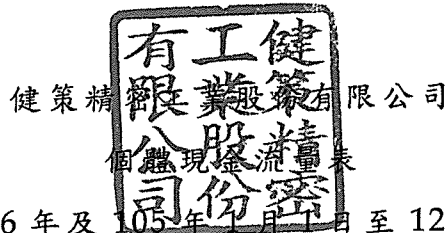 健策精密工業股份有限公司
個體現金流量表
6 年及 105 年 1 月 1 日至 12
健策精密
工業股份
有限公司